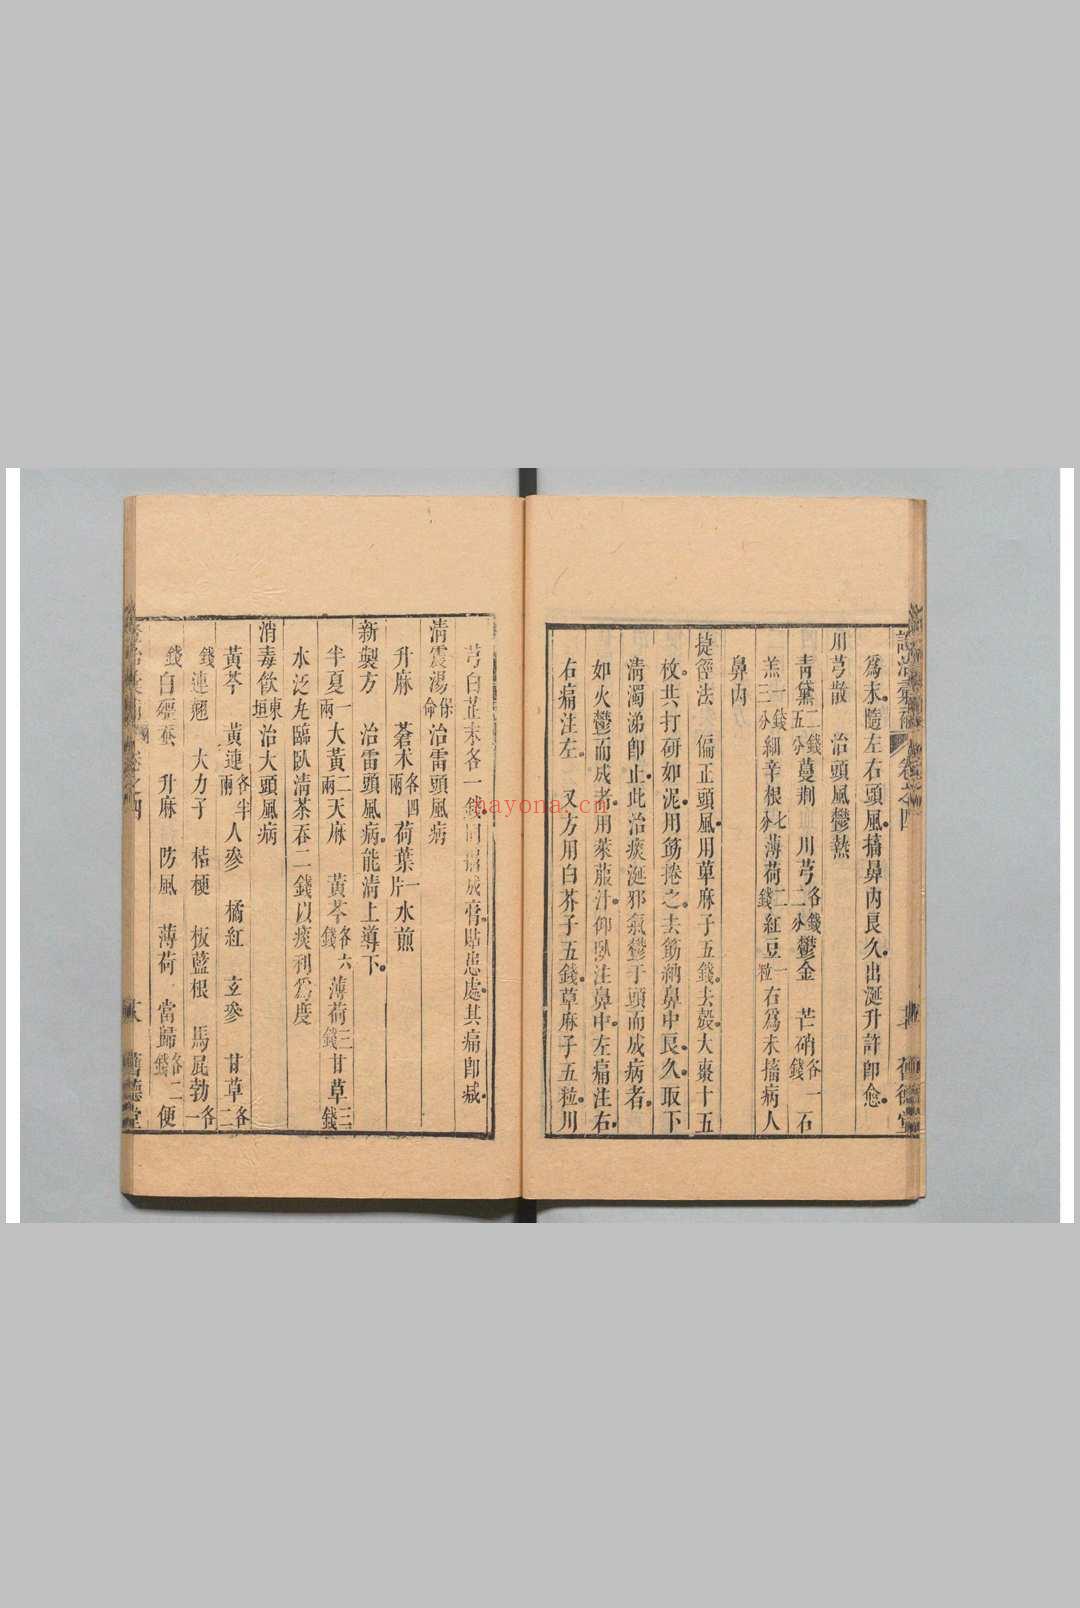 爲末隨左右頭風搐鼻內良久出涎升許卽愈
川芎散　治頭風鬱熱
青黛二錢五分　蔓荊　川芎各錢二分　鬱金　芒硝各一錢　石
羔一錢三分　細辛根七分　薄荷二錢　紅豆一粒　右爲末搐病人
鼻內
捷徑法　偏正頭風用萆麻子五錢去殼大棗十五
枚共打研如泥用筯捲之去筯納鼻中良久取下
淸濁涕卽止此治痰涎邪氣鬱于頭而成病者
如火鬱而成者用萊菔汁仰臥注鼻中左痛注右
右痛注左　又方用白芥子五錢萆麻子五粒川
芎白芷末各一錢同搗成膏貼患處其痛卽减
淸震湯保命　治雷頭風病
升麻　蒼朮各四兩　荷葉一片　水煎
新製方　治雷頭風病能淸上導下
半夏一兩　大黃二兩　天麻　黃芩各六錢　薄荷三錢　甘草三錢
水泛丸臨臥淸茶吞二錢以痰利爲度
消毒飮東垣　治大頭風病
黃芩　黃連各半兩　人參　橘紅　玄參　甘草各二
錢　連翹　大力子　桔梗　板藍根　馬屁勃各一
錢　白殭蚕　升麻　防風　薄荷　當歸各二錢　便
卷之四
舊德堂
hayona.cn